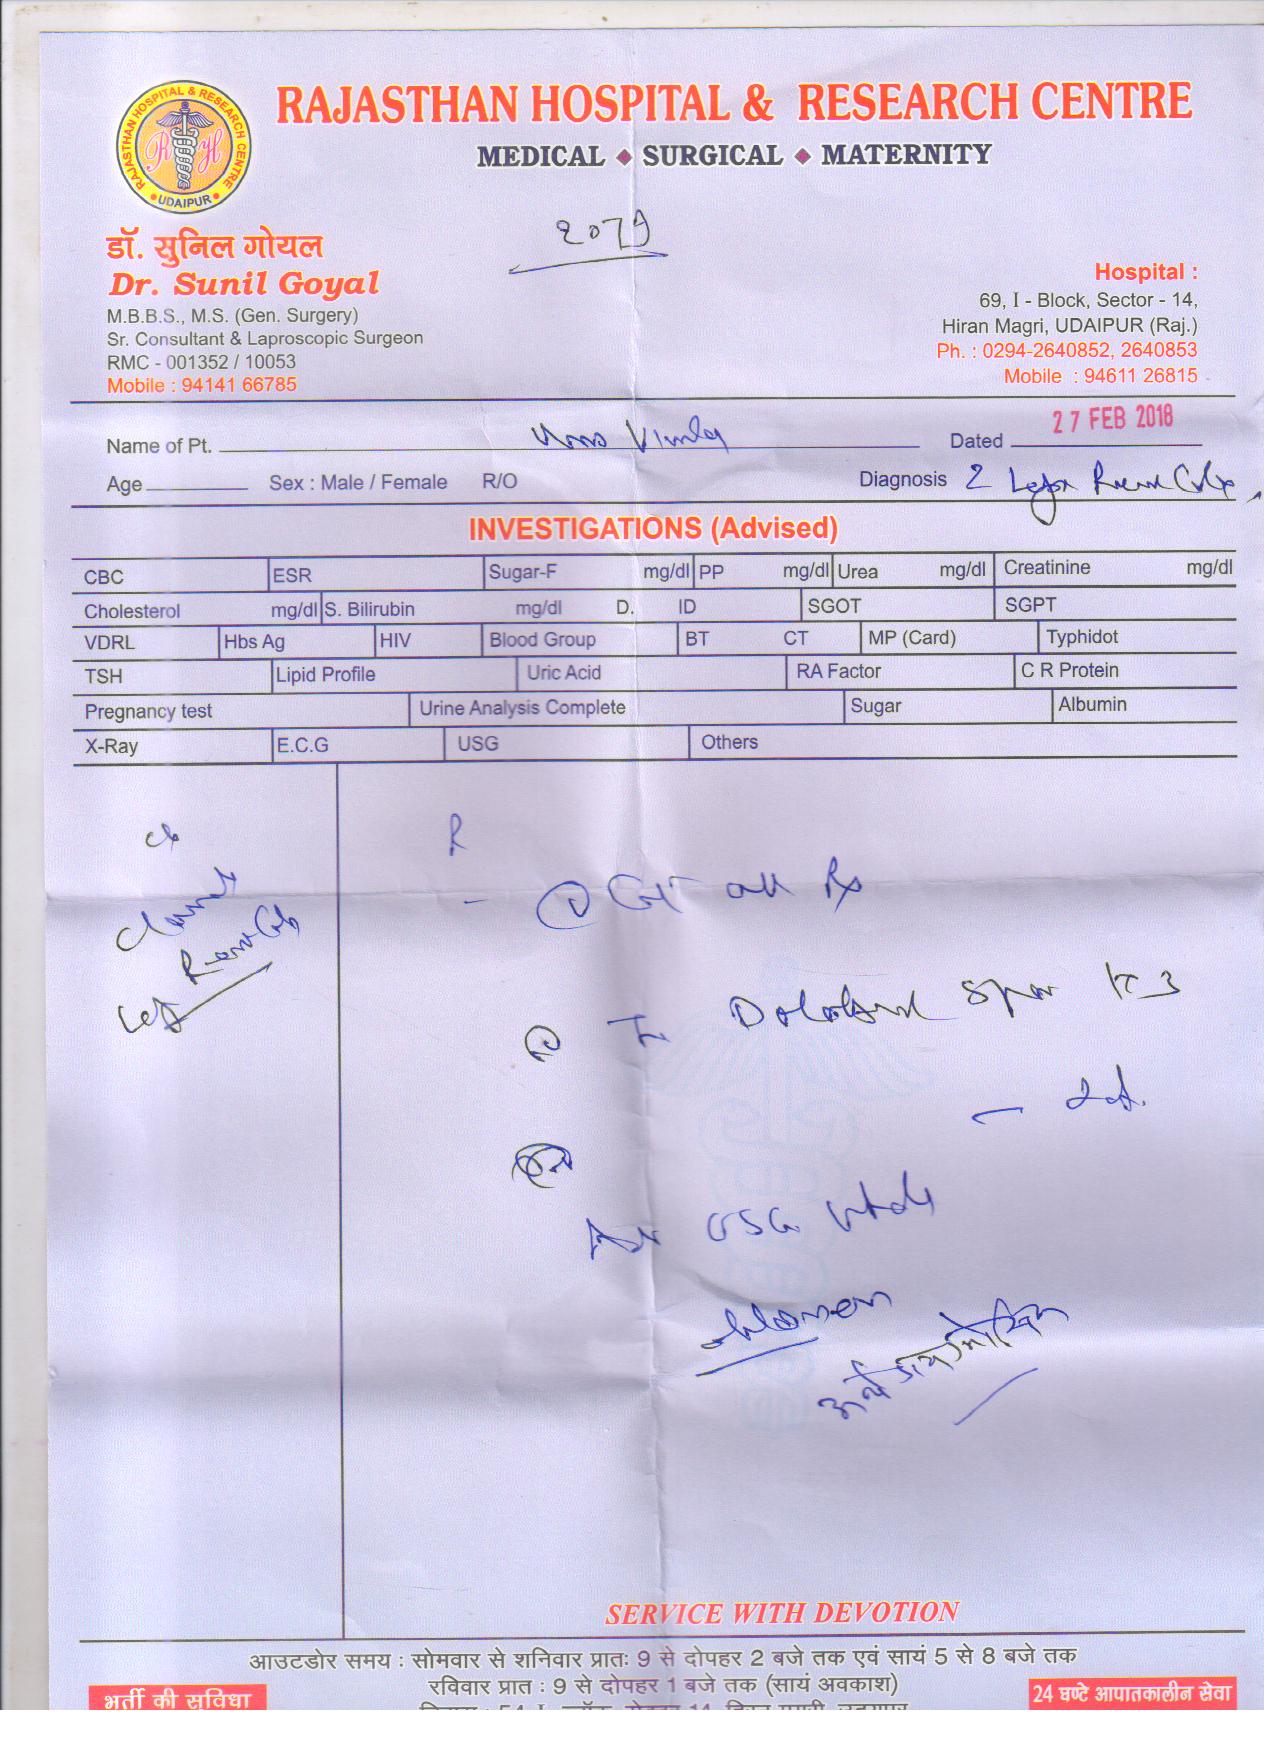 RAJASTHAN HOSPITAL & RESEARCH CENTRE
MEDICAL ◆ SURGICAL ◆ MATERNITY
RAJASTHAN HOSPITAL & RESEARCH CENTRE
RH
• UDAIPUR •
2079
डॉ. सुनिल गोयल
Dr. Sunil Goyal
M.B.B.S., M.S. (Gen. Surgery)
Sr. Consultant & Laproscopic Surgeon
RMC - 001352 / 10053
Mobile : 94141 66785
Hospital :
69, I - Block, Sector - 14,
Hiran Magri, UDAIPUR (Raj.)
Ph. : 0294-2640852, 2640853
Mobile : 94611 26815
Name of Pt. Vimla Dated 27 FEB 2018
Age Sex : Male / Female R/O Diagnosis
INVESTIGATIONS (Advised)
CBC ESR Sugar-F mg/dl PP mg/dl Urea mg/dl Creatinine mg/dl
Cholesterol mg/dl S. Bilirubin mg/dl D. ID SGOT SGPT
VDRL Hbs Ag HIV Blood Group BT CT MP (Card) Typhidot
TSH Lipid Profile Uric Acid RA Factor C R Protein
Pregnancy test Urine Analysis Complete Sugar Albumin
X-Ray E.C.G USG Others
c/o
R
all Rx
USG
SERVICE WITH DEVOTION
आउटडोर समय : सोमवार से शनिवार प्रातः 9 से दोपहर 2 बजे तक एवं सायं 5 से 8 बजे तक
रविवार प्रात : 9 से दोपहर 1 बजे तक (सायं अवकाश)
भर्ती की सुविधा
24 घण्टे आपातकालीन सेवा